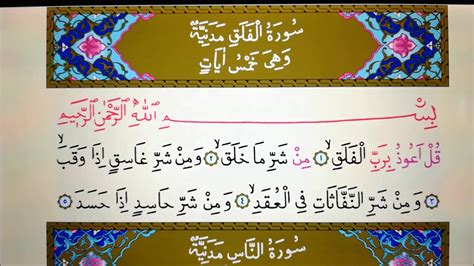 سُورَةُ الْفَلَقِ مَدَنِيَّةٌ
وَهِيَ خَمْسُ اٰيَاتٍ
بِسْمِ اللّٰهِ الرَّحْمٰنِ الرَّحِيمِ
قُلْ اَعُوذُ بِرَبِّ الْفَلَقِۙ ﴿١﴾ مِنْ شَرِّ مَا خَلَقَۙ ﴿٢﴾ وَمِنْ شَرِّ غَاسِقٍ اِذَا وَقَبَۙ
﴿٣﴾ وَمِنْ شَرِّ النَّفَّاثَاتِ فِى الْعُقَدِۙ ﴿٤﴾ وَمِنْ شَرِّ حَاسِدٍ اِذَا حَسَدَ ﴿٥﴾
سُورَةُ النَّاسِ مَدَنِيَّةٌ